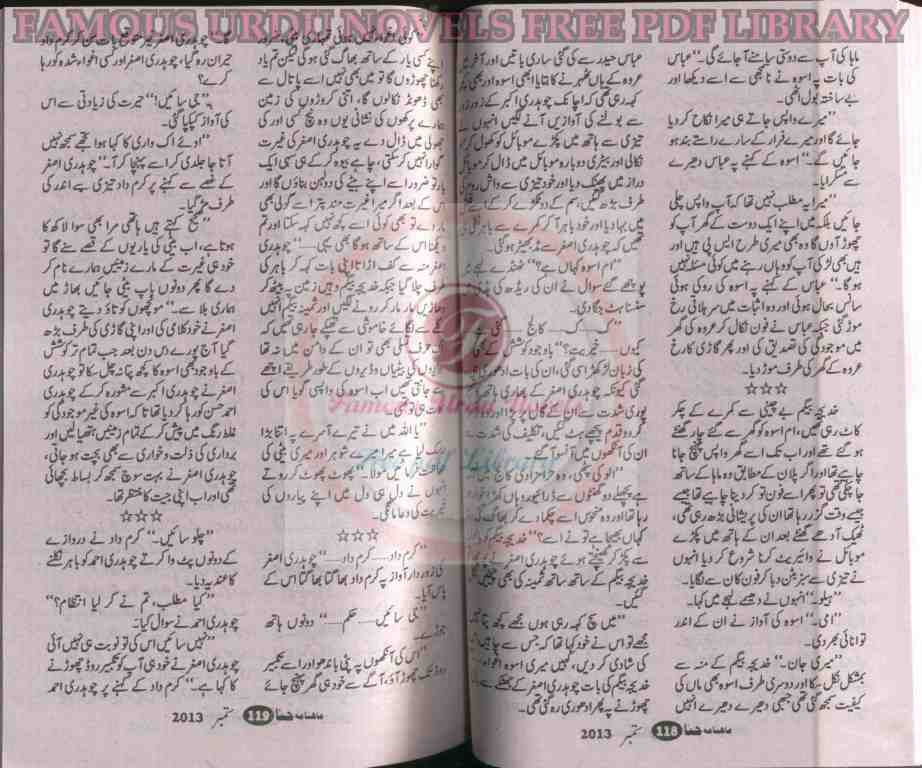 FAMOUS URDU NOVELS FREE PDF LIBRARY
ماہا کی آپ سے دوستی سامنے آ جائے گی۔“ عباس
کی بات پہ اسوہ نے نا سمجھی سے اسے دیکھا اور
بے ساختہ بول اٹھی۔
”میرے واپس جاتے ہی میرا نکاح کر دیا
جائے گا اور میرے فرار کے سارے راستے بند ہو
جائیں گے۔“ اسوہ کے کہنے پہ عباس دھیرے
سے مسکرایا۔
”میرا یہ مطلب نہیں تھا کہ آپ واپس چلی
جائیں بلکہ میں اپنے ایک دوست کے گھر آپ کو
چھوڑ آؤں گا وہ بھی میری طرح ایس پی ہیں اور
ہیں بھی لڑکی آپ کو وہاں رہنے میں کوئی مسئلہ نہیں
ہو گا۔“ عباس کے کہنے پہ اسوہ کی روکی ہوئی
سانس بحال ہوئی اور وہ اثبات میں سر ہلاتی رخ
موڑ گئی جبکہ عباس نے فون نکال کر عروہ کی گھر
میں موجودگی کی تصدیق کی اور پھر گاڑی کا رخ
عروہ کے گھر کی طرف موڑ دیا۔
☆☆☆
خدیجہ بیگم بے چینی سے کمرے کے چکر
کاٹ رہی تھیں، ام اسوہ کو گھر سے گئے چار گھنٹے
ہو گئے تھے اور اب تک اسے گھر واپس پہنچ جانا
چاہیے تھا اور اگر پلان کے مطابق وہ ماہا کے ساتھ
جا چکی تھی تو پھر اسے فون تو کر دینا چاہیے تھا جیسے
جیسے وقت گزر رہا تھا ان کی پریشانی بڑھ رہی تھی،
ٹھیک آدھے گھنٹے بعد ان کے ہاتھ میں پکڑے
موبائل نے وائبریٹ کرنا شروع کر دیا انہوں
نے تیزی سے سبز بٹن دبا کر فون کان سے لگایا۔
”ہیلو۔“ انہوں نے دھیمے لہجے میں کہا۔
”امی۔“ اسوہ کی آواز نے ان کے اندر
توانائی بھر دی۔
”میری جان۔“ خدیجہ بیگم کے منہ سے
بمشکل نکل سکا اور دوسری طرف اسوہ بھی ماں کی
کیفیت سمجھ گئی تھی جبھی دھیرے دھیرے انہیں
عباس حیدر سے کی گئی ساری باتیں اور آخر میں
عروہ کے ہاں ٹھہرنے کا بتایا ابھی اسوہ اور بھی کچھ
کہہ رہی تھی کہ اچانک چوہدری اکبر کے زور زور
سے بولنے کی آوازیں آنے لگیں انہوں نے
تیزی سے ہاتھ میں پکڑے موبائل کو کھول کر
نکالی اور بیٹری دوبارہ موبائل میں ڈال کر موبائل
دراز میں پھینک دیا اور خود تیزی سے واش روم کی
طرف بڑھ گئیں، سم کے دو ٹکڑے کر کے اسے
میں بہا دیا اور خود باہر آ کر کمرے سے باہر نکلی ہی
تھیں کہ چوہدری اصغر سے ٹڈبھیڑ ہو گئی۔
”ام اسوہ کہاں ہے؟“ ٹھنڈے لہجے میں
پوچھے گئے سوال نے ان کی ریڑھ کی ہڈی میں
سنسناہٹ دوڑا دی۔
”ک..... ک..... کالج..... گئی ہے
کیوں..... خیر ہے؟“ باوجود کوشش کے بھی
کی زبان لڑکھڑا سی گئی، ان کی بات ادھوری رہ
گئی کیونکہ چوہدری اصغر کے بھاری ہاتھ
پوری شدت سے ان کے گال پہ پڑا اور وہ
کر دو قدم پیچھے ہٹ گئیں، تکلیف کی شدت سے
ان کی آنکھوں میں آنسو آ گئے۔
”الو کی پٹھی، وہ حرامزادی کالج میں
ہے پچھلے دو گھنٹوں سے ڈرائیور وہاں کھڑا خوار ہو
رہا تھا اور وہ منحوس اسے چکما دے کر بھاگ گئی
کہاں بھیجا ہے تو نے اسے؟“ خدیجہ بیگم کو
سے پکڑ کر کھینچتے ہوئے چوہدری اصغر
خدیجہ بیگم کے ساتھ ساتھ ثمینہ کی بھی چیخیں نکل
گئیں۔
”میں سچ کہہ رہی ہوں مجھے کچھ پتا نہیں
مجھے تو اس نے خود کہا تھا کہ جس سے چاہیں اس
کی شادی کر دیں، کہیں میری اسوہ اغواء.....“
خدیجہ بیگم کی بات چوہدری اصغر کے جھٹکے سے
چھوڑنے پہ پھر ادھوری رہ گئی تھی۔
ماہنامہ حنا 118 ستمبر 2013
اپنے کسی یار کے ساتھ بھاگ گئی ہو گی لیکن تم یاد
چھوڑوں گا تو میں بھی نہیں اسے پاتال سے
بھی ڈھونڈ نکالوں گا، اتنی کروڑوں کی زمین
ہمارے پرکھوں کی نشانی یوں وہ نیچ کسی اور کی
جھولی میں ڈال دے یہ چوہدری اصغر کی غیرت
گوارا نہیں کر سکتی، چاہے بیوہ کر کے ہی سہی ایک
بار تو ضرور اسے اپنے بیٹے کی دولہن بناؤں گا اور
اس کے بعد اگر میرا غیرت مند پتر اسے گولی بھی
مار دے تو بھی کوئی اسے کچھ نہیں کہہ سکتا اور تم
دیکھنا اس کے ساتھ ہو گا بھی یہی.....“ چوہدری
اصغر منہ سے کف اڑاتا اپنی بات کہہ کر باہر کی
طرف چلا گیا جبکہ خدیجہ بیگم وہیں زمین پہ بیٹھ کر
دھاڑیں مار مار کر رونے لگیں اور ثمینہ بیگم انہیں
گلے سے لگائے خاموشی سے تھپکے جا رہی تھیں کہ
”یا اللہ میں نے تیرے آسرے پہ اتنا بڑا
پھوٹ پھوٹ کر روتے
انہوں نے دل ہی دل میں اپنے پیاروں کی
خیریت کی دعا مانگی۔
☆☆☆
”کرم داد..... کرم داد.....“ چوہدری اصغر
کی زور دار آواز پہ کرم داد بھاگتا بھاگتا اس کے
پاس آیا۔
”جی سائیں..... حکم.....“ دونوں ہاتھ
جوڑے۔
”اس کی آنکھوں پہ پٹی باندھو اور اسے تکبیر
روڈ تک چھوڑ آؤ، آگے سے خود ہی گھر پہنچ جائے
گا۔“ چوہدری اصغر کی غیر متوقع بات سن کر کرم داد
حیران رہ گیا، چوہدری اصغر اور کسی اغواء شدہ کو رہا
کرے؟
”جی سائیں!“ حیرت کی زیادتی سے اس
کی آواز کپکپا گئی۔
”اوئے اک واری کا کہا ہوا تجھے سمجھ نہیں
آتا جا جلدی کر اسے پہنچا کر آ۔“ چوہدری اصغر
کے غصے سے کہنے پر کرم داد تیزی سے اندر کی
طرف مڑ گیا۔
”سچ کہتے ہیں ہاتھی مرا بھی سوا لاکھ کا
ہوتا ہے، اب بیٹی کی یاریوں کے قصے سنے گا تو
خود ہی غیرت کے مارے زمینیں ہمارے نام کر
دے گا پھر دونوں باپ بیٹی جائیں بھاڑ میں
ہماری بلا سے۔“ مونچھوں کو تاؤ دیتے چوہدری
اصغر نے خود کلامی کی اور اپنی گاڑی کی طرف بڑھ
گیا آج پورے اس دن بعد جب تمام تر کوشش
کے باوجود بھی اسوہ کا کچھ پتا نہ چل سکا تو چوہدری
اصغر نے چوہدری اکبر سے مشورہ کر کے چوہدری
احمد حسن کو رہا کر دیا تھا تاکہ اسوہ کی غیر موجودگی کو
غلط رنگ میں پیش کر کے تمام زمینیں ہتھیا لیں اور
برادری کی ذلت و خواری سے بھی بچت ہو جائے،
چوہدری اصغر نے بہت سوچ سمجھ کر بساط بچھائی
تھی اور اب اپنی جیت کا منتظر تھا۔
☆☆☆
”چلو سائیں۔“ کرم داد نے دروازے
کے دونوں پٹ وا کرتے چوہدری احمد کو باہر نکلنے
کا عندیہ دیا۔
”کیا مطلب، تم نے کر لیا انتظام؟“
چوہدری احمد نے سوال کیا۔
”نہیں سائیں اس کی تو نوبت ہی نہیں آئی
چوہدری اصغر نے خود ہی آپ کو تکبیر روڈ چھوڑنے
کا کہا ہے۔“ کرم داد کے کہنے پر چوہدری احمد
ماہنامہ حنا 119 ستمبر 2013